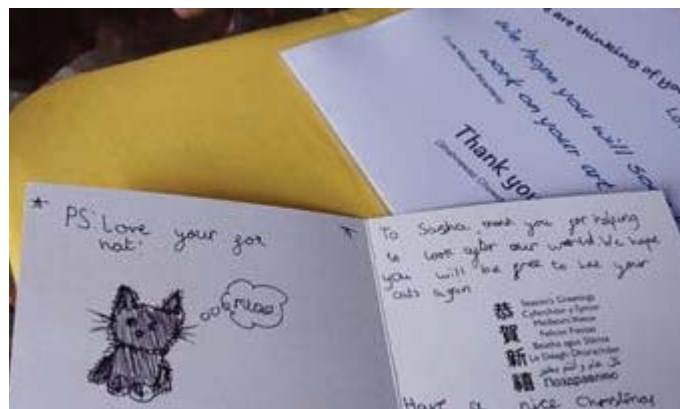 are thinking of you
We hope you will so
work on your art
Thank you
PS: Love your fox
hat!
miao
To Sasha, thank you for helping
to look after our world. We hope
you will be free to see your
cats again
恭
賀
新
禧
Season's Greetings
Cyfarchion y Tymor
Meilleurs Voeux
Felices Fiestas
Beatha agus Sláinte
Le Deagh Dhùrachdan
كل عام و أنتم بخير
Поздравляю
Have a nice Christmas